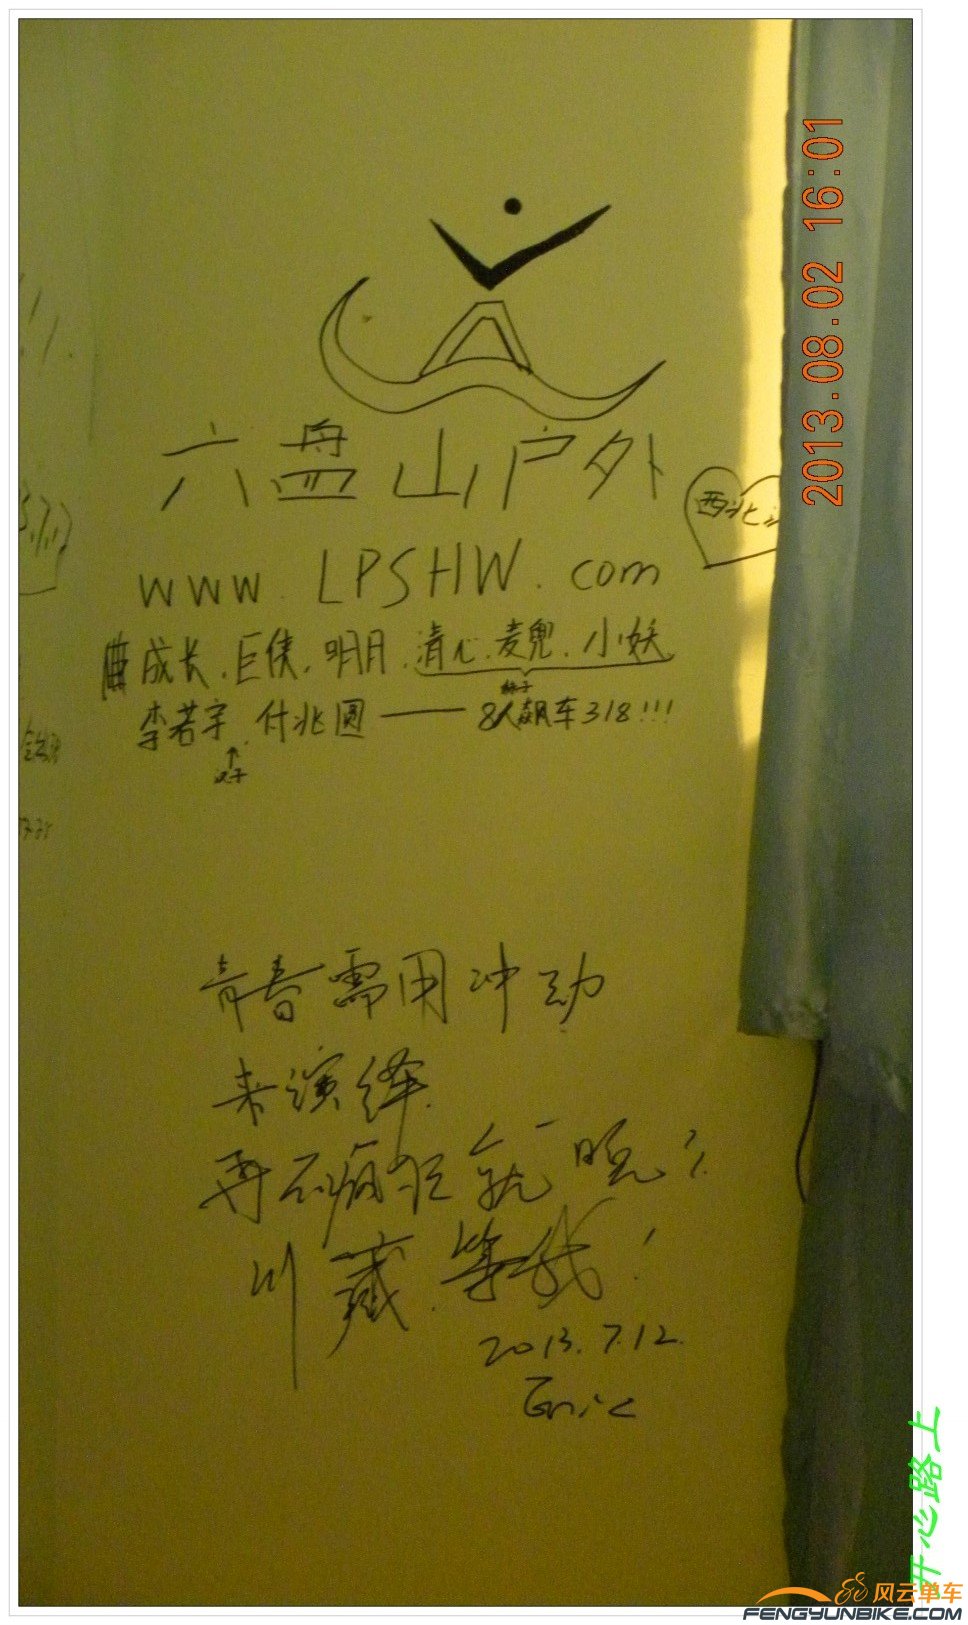 六盘山户外
西北
www.LPSHW.com
曲成长.巨侠.明月.清心.麦兜.小妖
李若宇.付兆圆——8人飙车318!!!
青春需用冲动
来演绎.
再不疯狂就晚!
川藏.等我!
2013.7.12.
Eric
2013.08.02 16:01
开心路上
风云单车
FENGYUNBIKE.COM